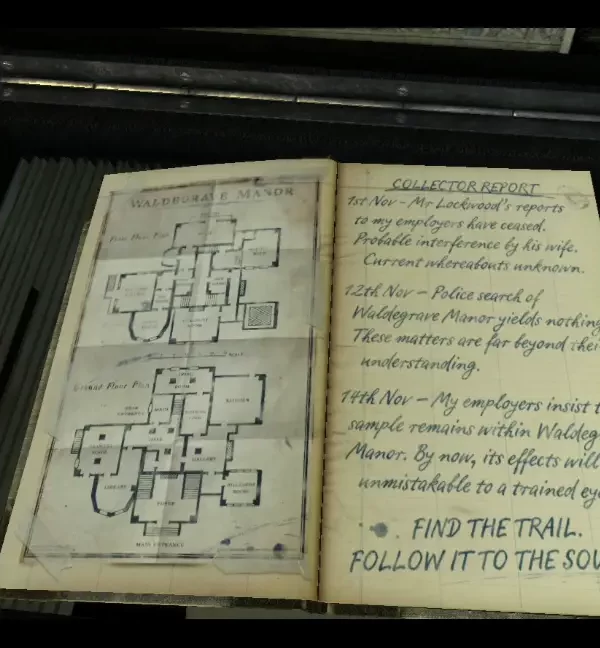 WALDEGRAVE MANOR
First Floor Plan
Ground Floor Plan
KITCHEN
HALL
GALLERY
LIBRARY
FOYER
MAIN ENTRANCE
COLLECTOR REPORT
1st Nov - Mr Lockwood's reports
to my employers have ceased.
Probable interference by his wife.
Current whereabouts unknown.
12th Nov - Police search of
Waldegrave Manor yields nothing
These matters are far beyond thei
understanding.
14th Nov - My employers insist t
sample remains within Waldeg
Manor. By now, its effects will
unmistakable to a trained eye
FIND THE TRAIL.
FOLLOW IT TO THE SOU